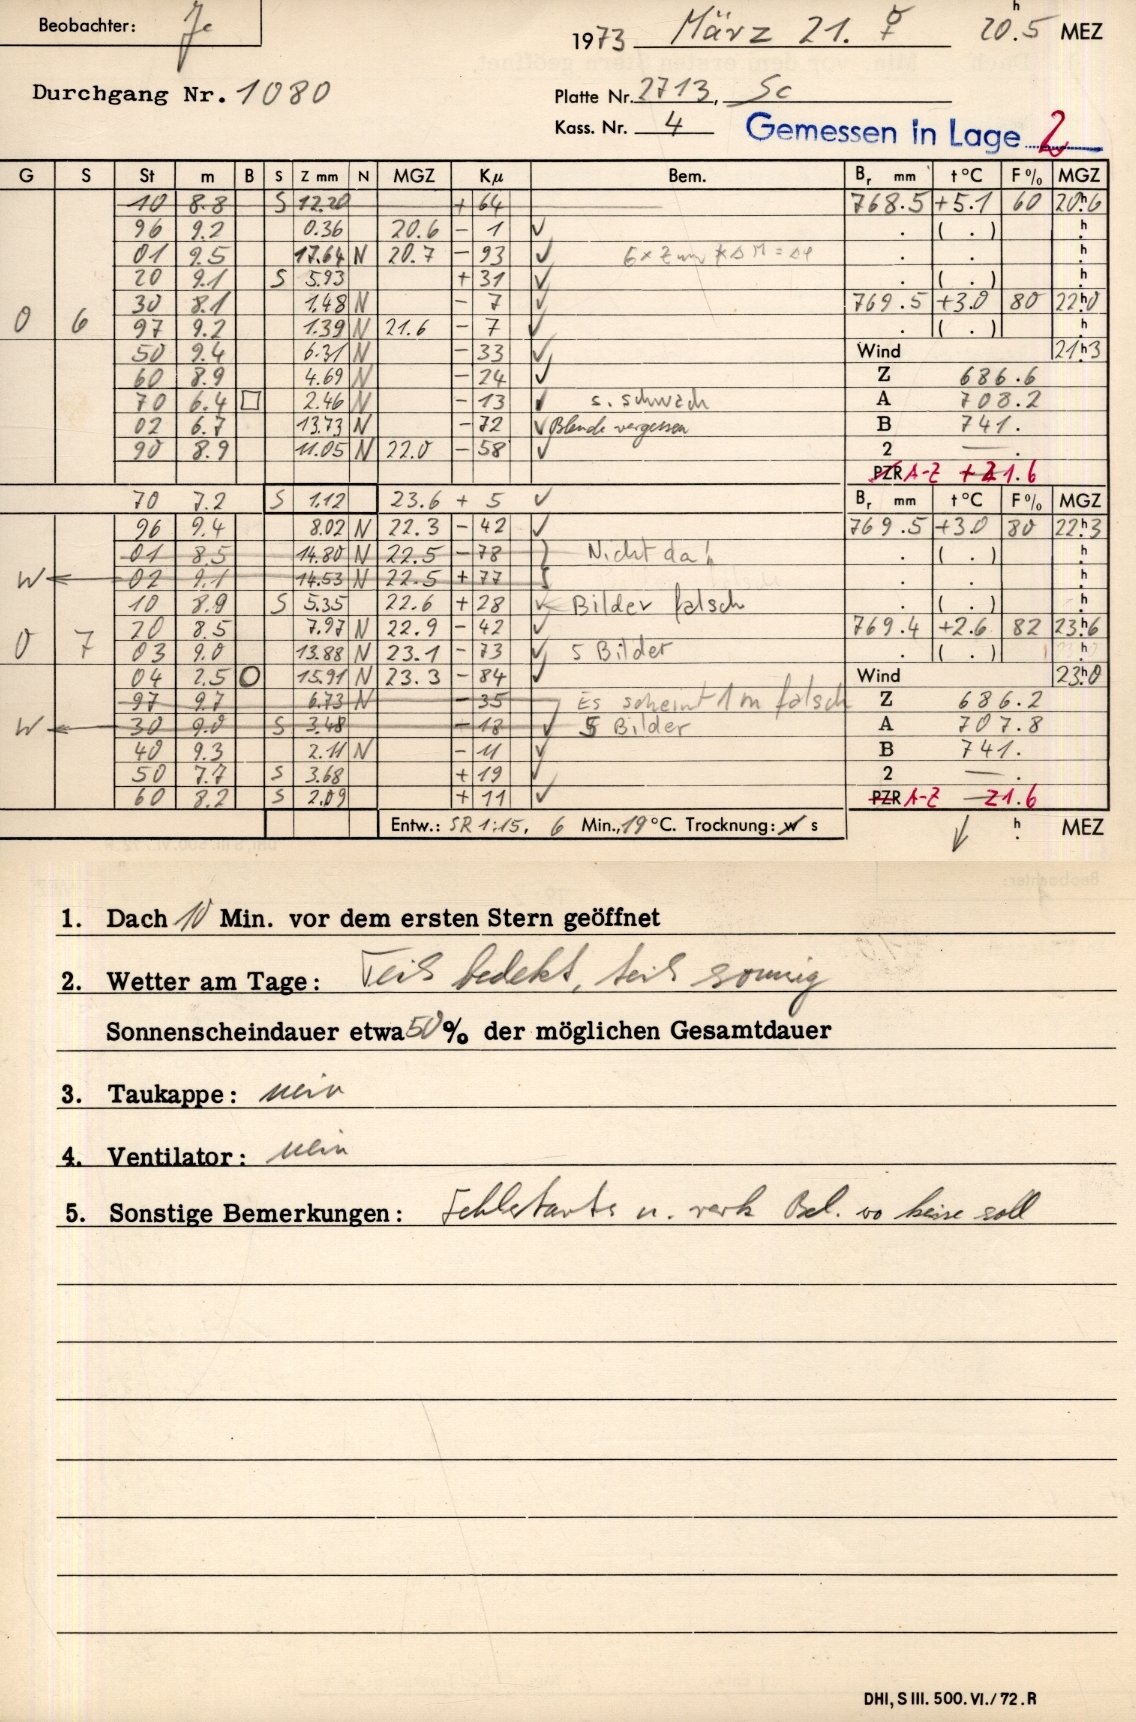 Beobachter: Je
1973 März 21. ☿ 20.5 h MEZ
Durchgang Nr. 1080
Platte Nr. 2713, Sc
Kass. Nr. 4
Gemessen in Lage 2
G S St m B S Z mm N MGZ Kμ Bem. Br mm t °C F % MGZ
10 8.8 S 12.20 + 64 768.5 +5.1 60 20h6
96 9.2 0.36 20.6 - 1 ✓ . ( . ) h
01 9.5 17.64 N 20.7 - 93 ✓ . . h
20 9.1 S 5.93 + 31 ✓ . ( . ) h
30 8.1 1.48 N - 7 ✓ 769.5 +3.0 80 22h0
0 6 97 9.2 1.39 N 21.6 - 7 ✓ . ( . ) h
50 9.4 6.31 N - 33 ✓ Wind 21h3
60 8.9 4.69 N - 24 ✓ Z 686.6
70 6.4 □ 2.46 N - 13 ✓ s. schwach A 708.2
02 6.7 13.73 N - 72 ✓ Blende vergessen B 741.
90 8.9 11.05 N 22.0 - 58 ✓ 2 — .
PZR A-Z 21.6
70 7.2 S 1.12 23.6 + 5 ✓ Br mm t °C F % MGZ
96 9.4 8.02 N 22.3 - 42 ✓ 769.5 +3.0 80 22h3
01 8.5 14.80 N 22.5 - 78 } Nicht da! . ( . ) h
W ← 02 9.1 14.53 N 22.5 + 77 . . h
10 8.9 S 5.35 22.6 + 28 ✓ Bilder falsch . ( . ) h
20 8.5 7.97 N 22.9 - 42 ✓ 769.4 +2.6 82 23h6
0 7 03 9.0 13.88 N 23.1 - 73 ✓ 5 Bilder . ( . ) h
04 2.5 O 15.91 N 23.3 - 84 ✓ Wind 23h0
97 9.7 6.73 N - 35 Es scheint 1m falsch Z 686.2
W ← 30 9.0 S 3.48 - 18 ✓ 5 Bilder A 707.8
40 9.3 2.11 N - 11 ✓ B 741.
50 7.7 S 3.68 + 19 ✓ 2 — .
60 8.2 S 2.09 + 11 ✓ PZR A-Z 21.6
Entw.: SR 1:15, 6 Min., 19 °C. Trocknung: w s h MEZ
1. Dach 10 Min. vor dem ersten Stern geöffnet
2. Wetter am Tage: Teils bedekt, teils sonnig
Sonnenscheindauer etwa 50 % der möglichen Gesamtdauer
3. Taukappe: nein
4. Ventilator: nein
5. Sonstige Bemerkungen: Fehlstarts u. Bel. wo keine soll
DHI, S III. 500. VI./72. R